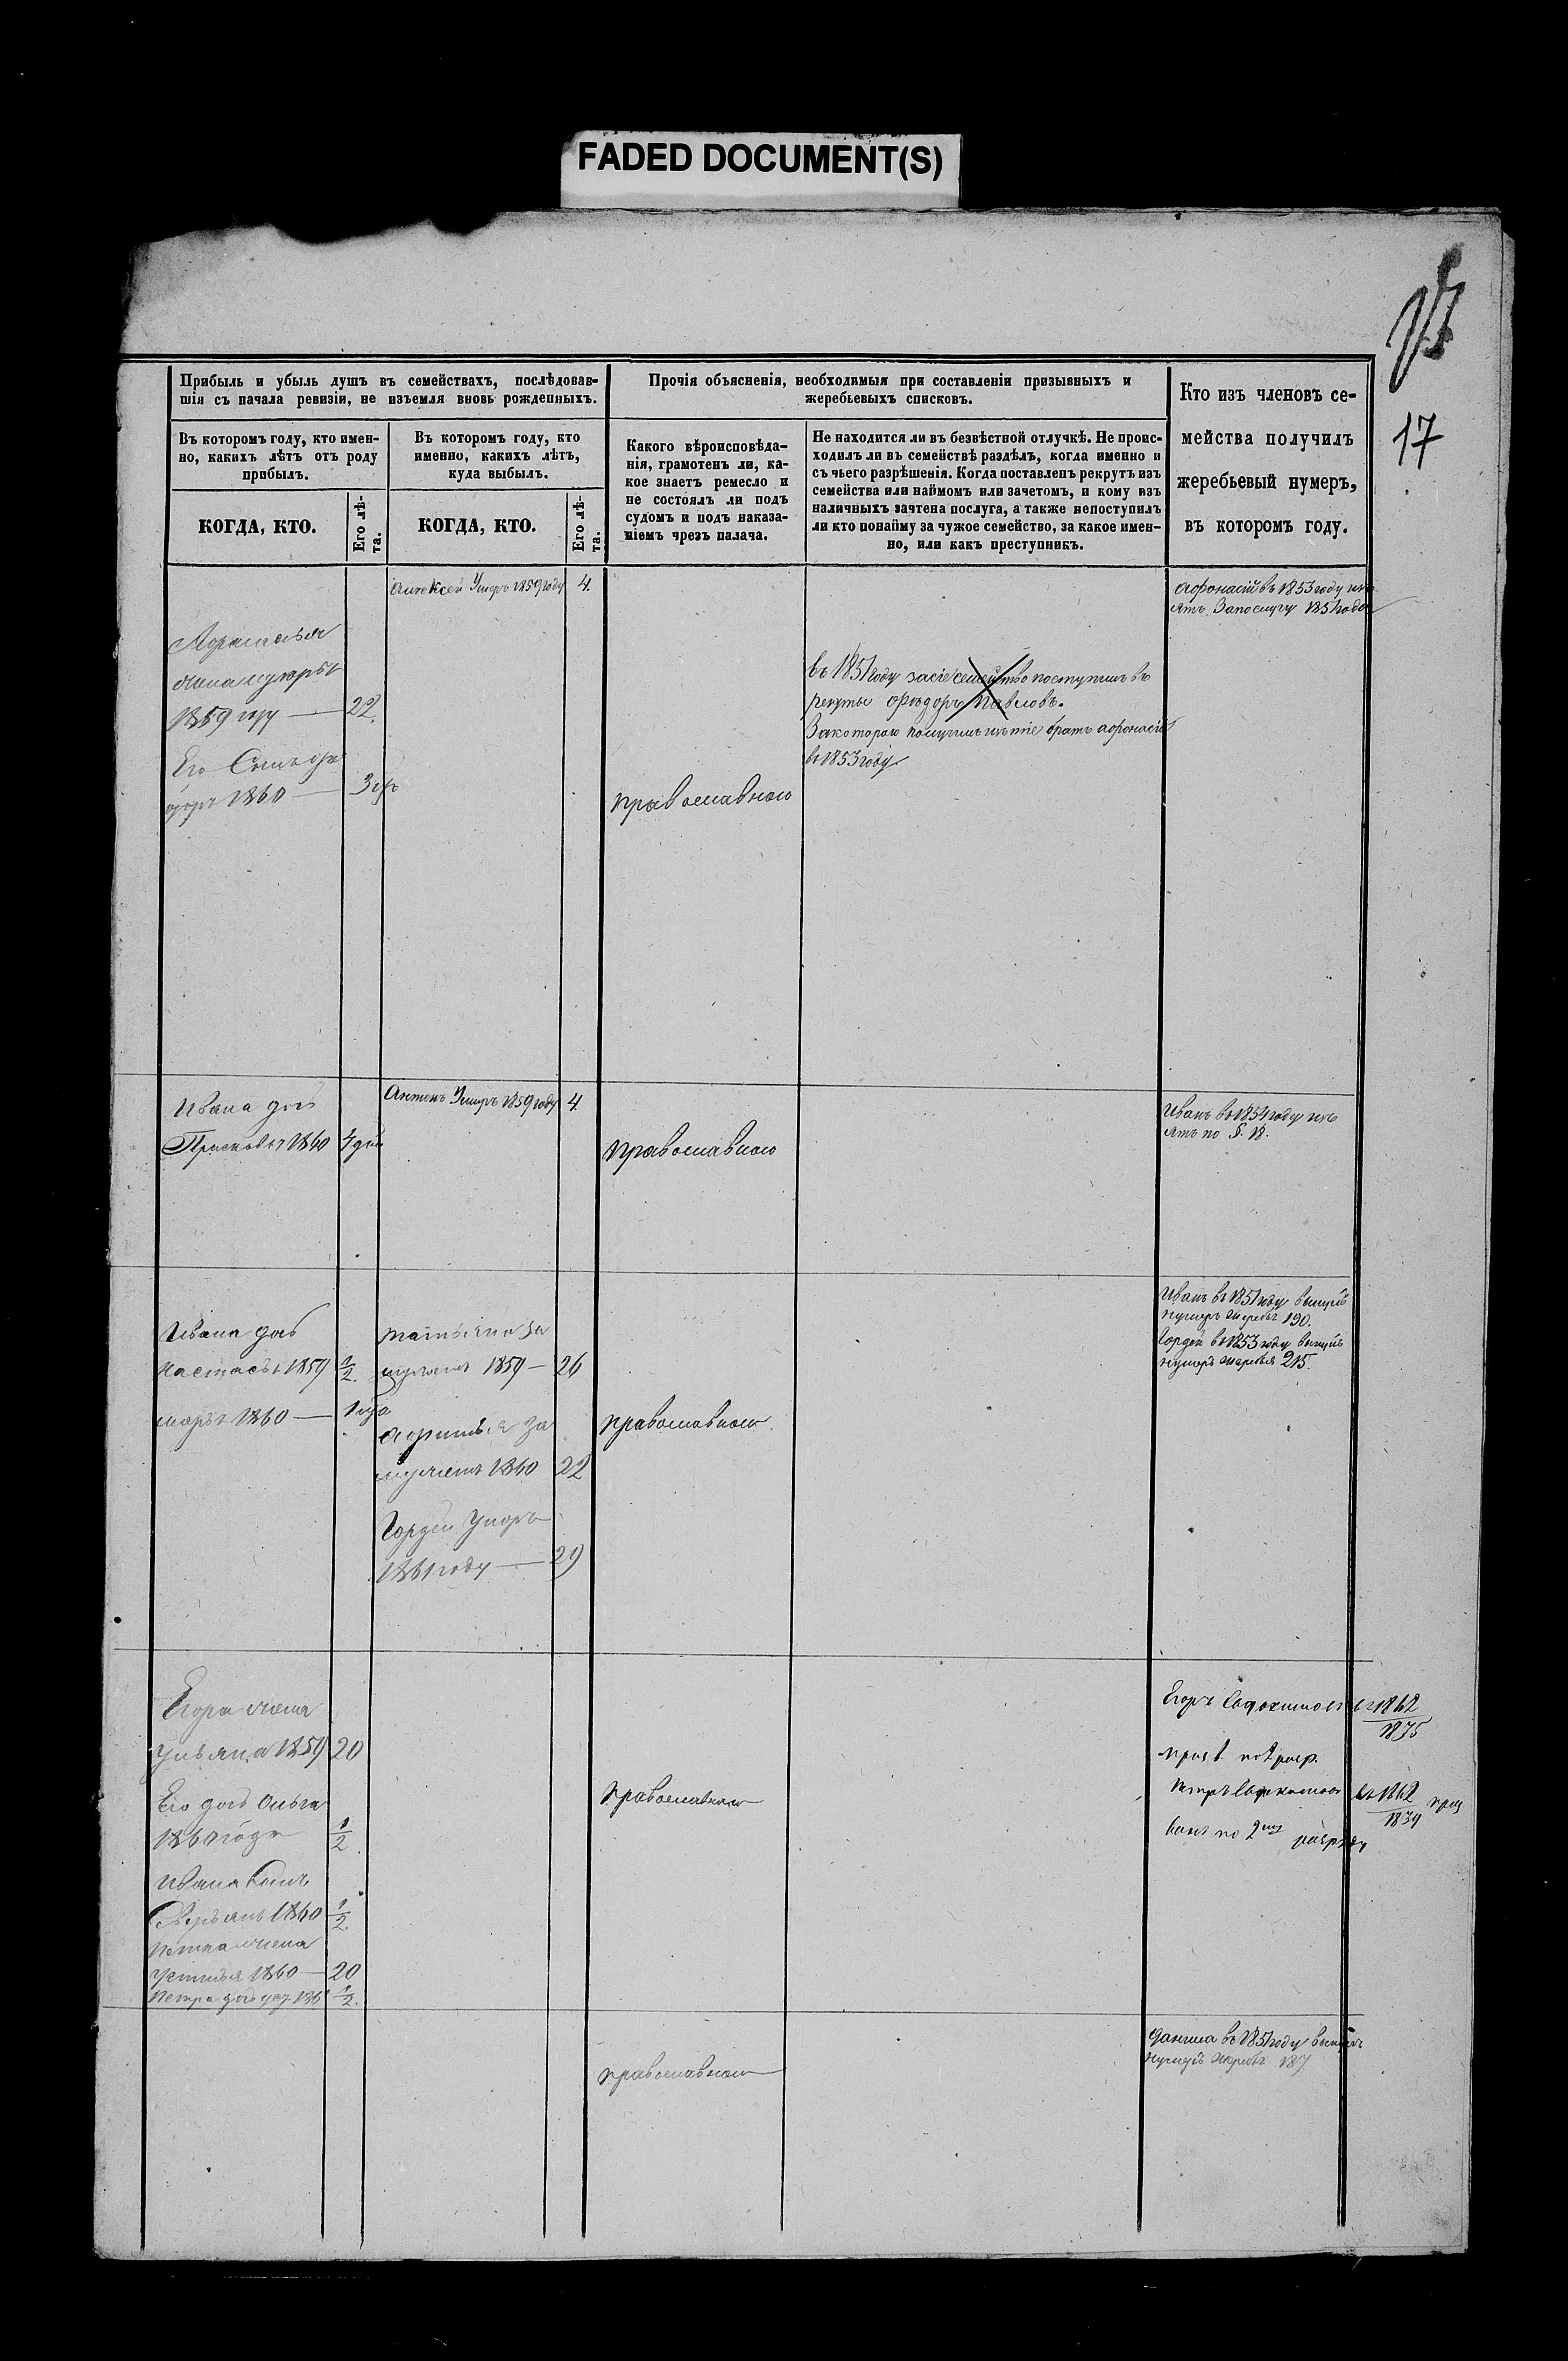 FADED DOCUMENT(S)
17
Прибыль и убыль душъ въ семействахъ, послѣдовав-
шія съ начала ревизіи, не изъемля вновь рожденныхъ.
Прочія объясненія, необходимыя при составленіи призывныхъ и
жеребьевыхъ списковъ.
Кто изъ членовъ се-
мейства получилъ
жеребьевый нумеръ,
въ которомъ году.
Въ которомъ году, кто имен-
но, какихъ лѣтъ отъ роду
прибылъ.
Въ которомъ году, кто
именно, какихъ лѣтъ,
куда выбылъ.
Какого вѣроисповѣда-
нія, грамотенъ ли, ка-
кое знаетъ ремесло и
не состоялъ ли подъ
судомъ и подъ наказа-
ніемъ чрезъ палача.
Не находится ли въ безвѣстной отлучкѣ. Не проис-
ходилъ ли въ семействѣ раздѣлъ, когда именно и
съ чьего разрѣшенія. Когда поставленъ рекрутъ изъ
семейства или наймомъ или зачетомъ, и кому изъ
наличныхъ зачтена послуга, а также непоступилъ
ли кто понайму за чужое семейство, за какое имен-
но, или какъ преступникъ.
КОГДА, КТО.
Его лѣ-
та.
КОГДА, КТО.
Его лѣ-
та.
Алексей Умеръ 1859 году 4.
Афонасій въ 1853 году изъ
ятъ За послугу 1851 года
жена
1859 году — 22.
Его Сынъ
1860 —
въ 1851 году засіе семейство поступилъ въ
рекруты Фѣодоръ Павловъ.
За которою получилъ изътіе братъ Афонасій
въ 1853 году
православного
Ивана дочь
Прасковья 1860 4 дня
Антонъ Умеръ 1859 году 4.
православного
Иванъ въ 1854 году изъ
ятъ по §. 18.
Ивана дочь
Настасья 1859 1/2.
марья 1860 —
татьяна за
мужемъ 1859 — 26
за
мужемъ 1860 22
Гордей Умеръ
1861 году — 29
православного
Иванъ въ 1851 году вынулъ
нумеръ жеребья 190.
Гордей въ 1853 году вынулъ
нумеръ жеребья 215.
Егора жена
Ульяна 1859 20
Его дочь Ольга
1860 года 1/2
Ивана Сынъ
1860 1/2.
Петра жена
Устинья 1860 — 20
Петра дочь 1/2.
православного
Егоръ Евдокимовъ въ 1862
1835
по 2 разр.
Петръ въ 1862
1839
по 2му разряду
православного
Данила въ 1851 году вынулъ
нумеръ жеребья 187